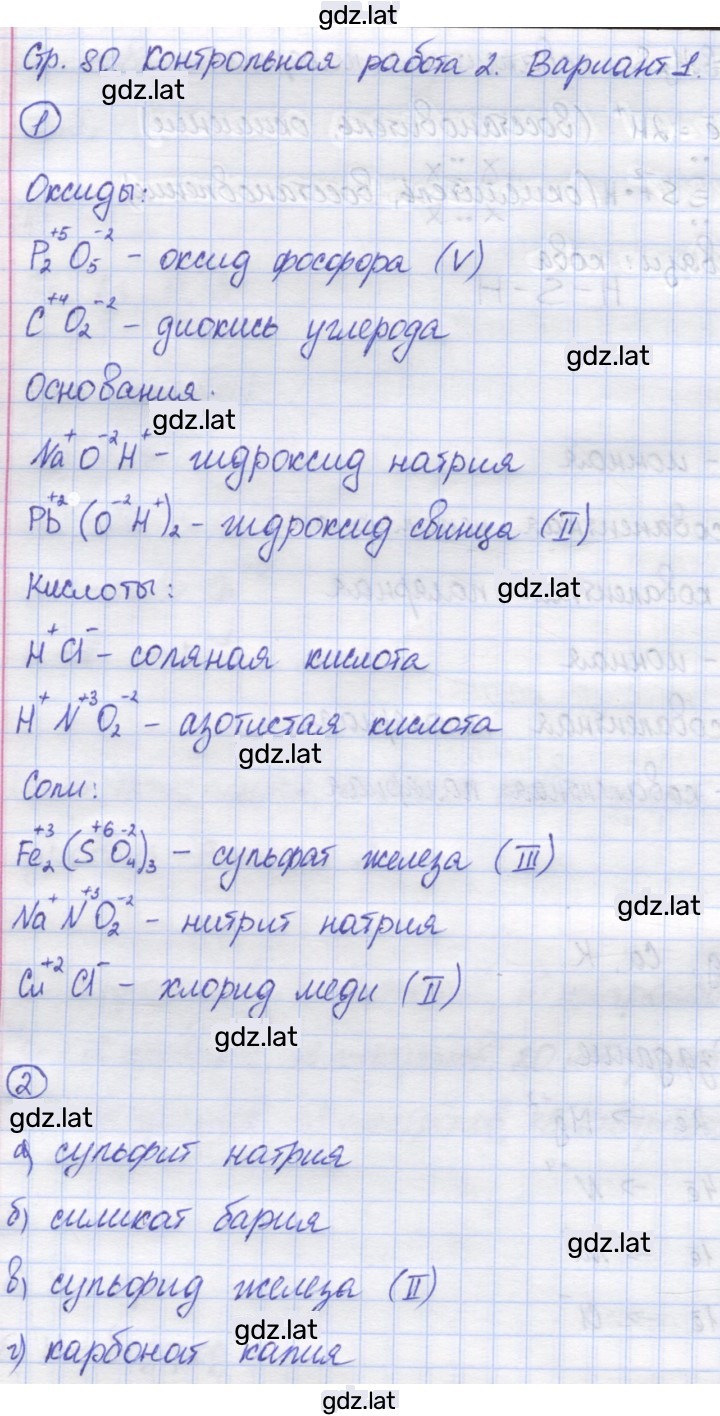 gdz.lat
Стр. 80 Контрольная работа 2. Вариант 1.
gdz.lat
1
Оксиды:
P₂⁺⁵O₅⁻² - оксид фосфора (V)
C⁺⁴O₂⁻² - диокись углерода
gdz.lat
Основания.
gdz.lat
Na⁺O⁻²H⁺ - гидроксид натрия
Pb⁺²(O⁻²H⁺)₂ - гидроксид свинца (II)
Кислоты:
gdz.lat
H⁺Cl⁻ - соляная кислота
H⁺N⁺³O₂⁻² - азотистая кислота
gdz.lat
Соли:
Fe₂⁺³(S⁺⁶O₄⁻²)₃ - сульфат железа (III)
gdz.lat
Na⁺N⁺³O₂⁻² - нитрит натрия
Cu⁺²Cl⁻ - хлорид меди (II)
gdz.lat
2
gdz.lat
а) сульфит натрия
б) силикат бария
gdz.lat
в) сульфид железа (II)
gdz.lat
г) карбонат калия
gdz.lat